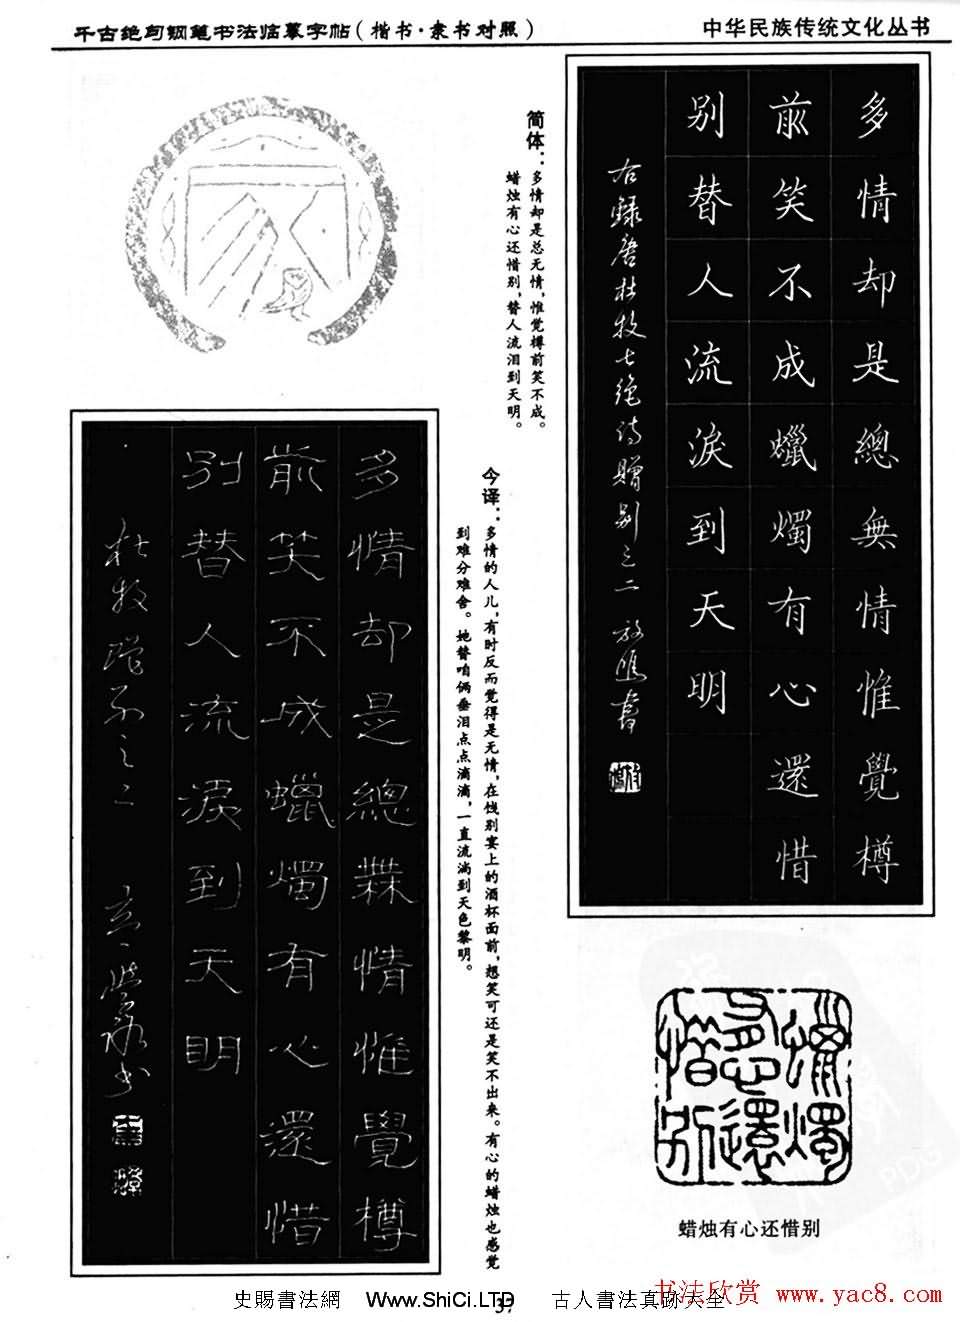 千古绝句钢笔书法临摹字帖(楷书·隶书对照)
中华民族传统文化丛书
多情却是總無情惟覺樽
前笑不成蠟燭有心還惜
别替人流淚到天明
右録唐杜牧七绝诗贈别之二
简体：多情却是总无情，惟觉樽前笑不成。
蜡烛有心还惜别，替人流泪到天明。
今译：多情的人儿，有时反而觉得是无情，在饯别宴上的酒杯面前，想笑可还是笑不出来。有心的蜡烛也感觉
到难分难舍。她替咱俩垂泪点点滴滴，一直流淌到天色黎明。
多情却是總無情惟覺樽
前笑不成蠟燭有心還惜
别替人流淚到天明
杜牧贈别之二
蠟燭有心還惜别
蜡烛有心还惜别
37
史賜書法網 Www.ShiCi.LTD 古人書法真跡大全
书法欣赏 www.yac8.com